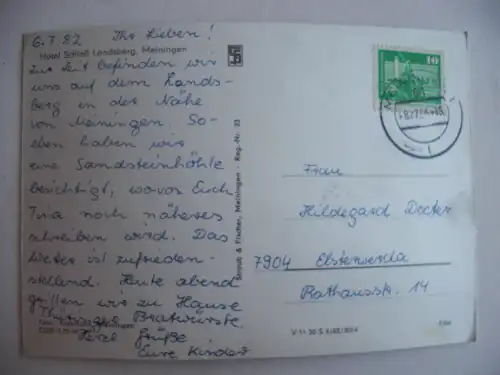 6.7.82 Ihr Lieben!
Hotel Schloß Landsberg, Meiningen
Zur Zeit befinden wir
uns auf dem Lands-
berg in der Nähe
von Meiningen. So-
eben haben wir
eine Sandsteinhöhle
besichtigt, wovon Euch
Tina noch näheres
schreiben wird. Das
Wetter ist zufrieden-
stellend. Heute abend
grillen wir zu Hause
Thüringer Bratwürste.
Herzl. Grüße
Eure Kinder
Straub & Fischer, Meiningen - Reg.-Nr. 35
V 11 28 S 6/82/8014
10
Frau
Hildegard Docter
7904 Elsterwerda
Rathausstr. 14